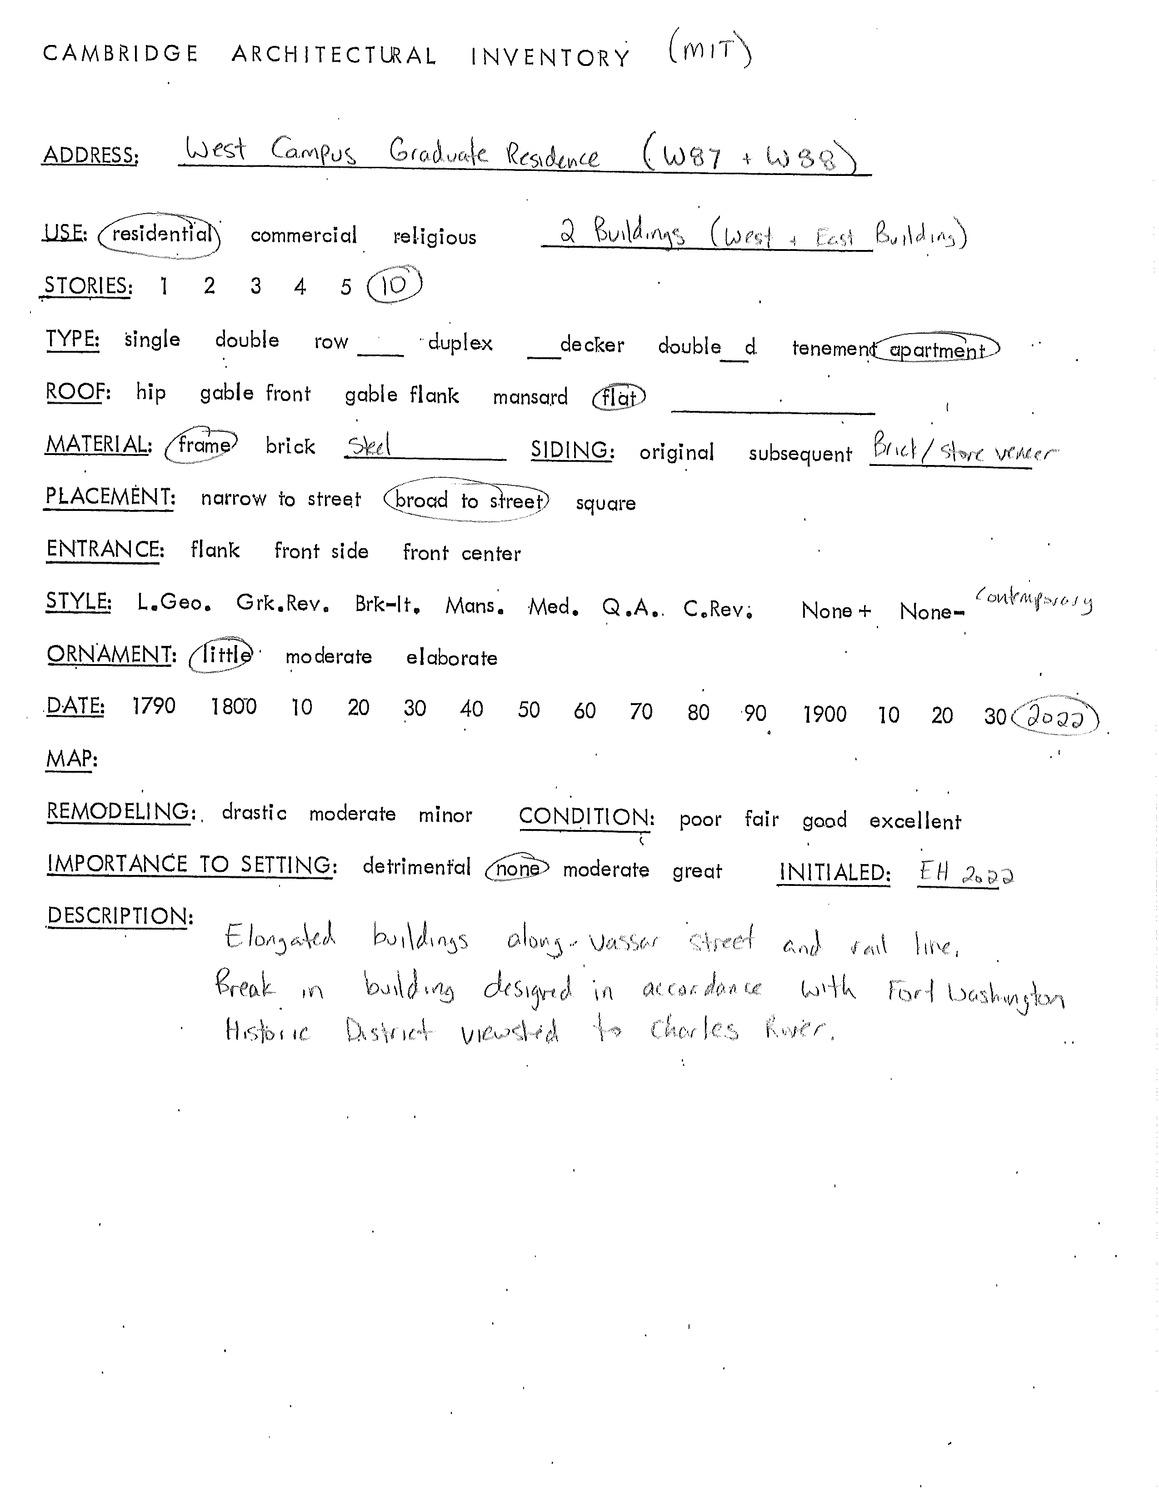 CAMBRIDGE ARCHITECTURAL INVENTORY (MIT)
ADDRESS: West Campus Graduate Residence (W87 + W88)
USE: residential commercial religious 2 Buildings (West + East Building)
STORIES: 1 2 3 4 5 10
TYPE: single double row ___ duplex ___decker double__d tenement apartment
ROOF: hip gable front gable flank mansard flat ___
MATERIAL: frame brick Steel SIDING: original subsequent Brick/stone veneer
PLACEMENT: narrow to street broad to street square
ENTRANCE: flank front side front center
STYLE: L.Geo. Grk.Rev. Brk-It. Mans. Med. Q.A. C.Rev. None+ None- Contemporary
ORNAMENT: little moderate elaborate
DATE: 1790 1800 10 20 30 40 50 60 70 80 90 1900 10 20 30 2022
MAP:
REMODELING: drastic moderate minor CONDITION: poor fair good excellent
IMPORTANCE TO SETTING: detrimental none moderate great INITIALED: EH 2022
DESCRIPTION:
Elongated buildings along Vassar street and rail line.
Break in building designed in accordance with Fort Washington
Historic District viewshed to Charles River.